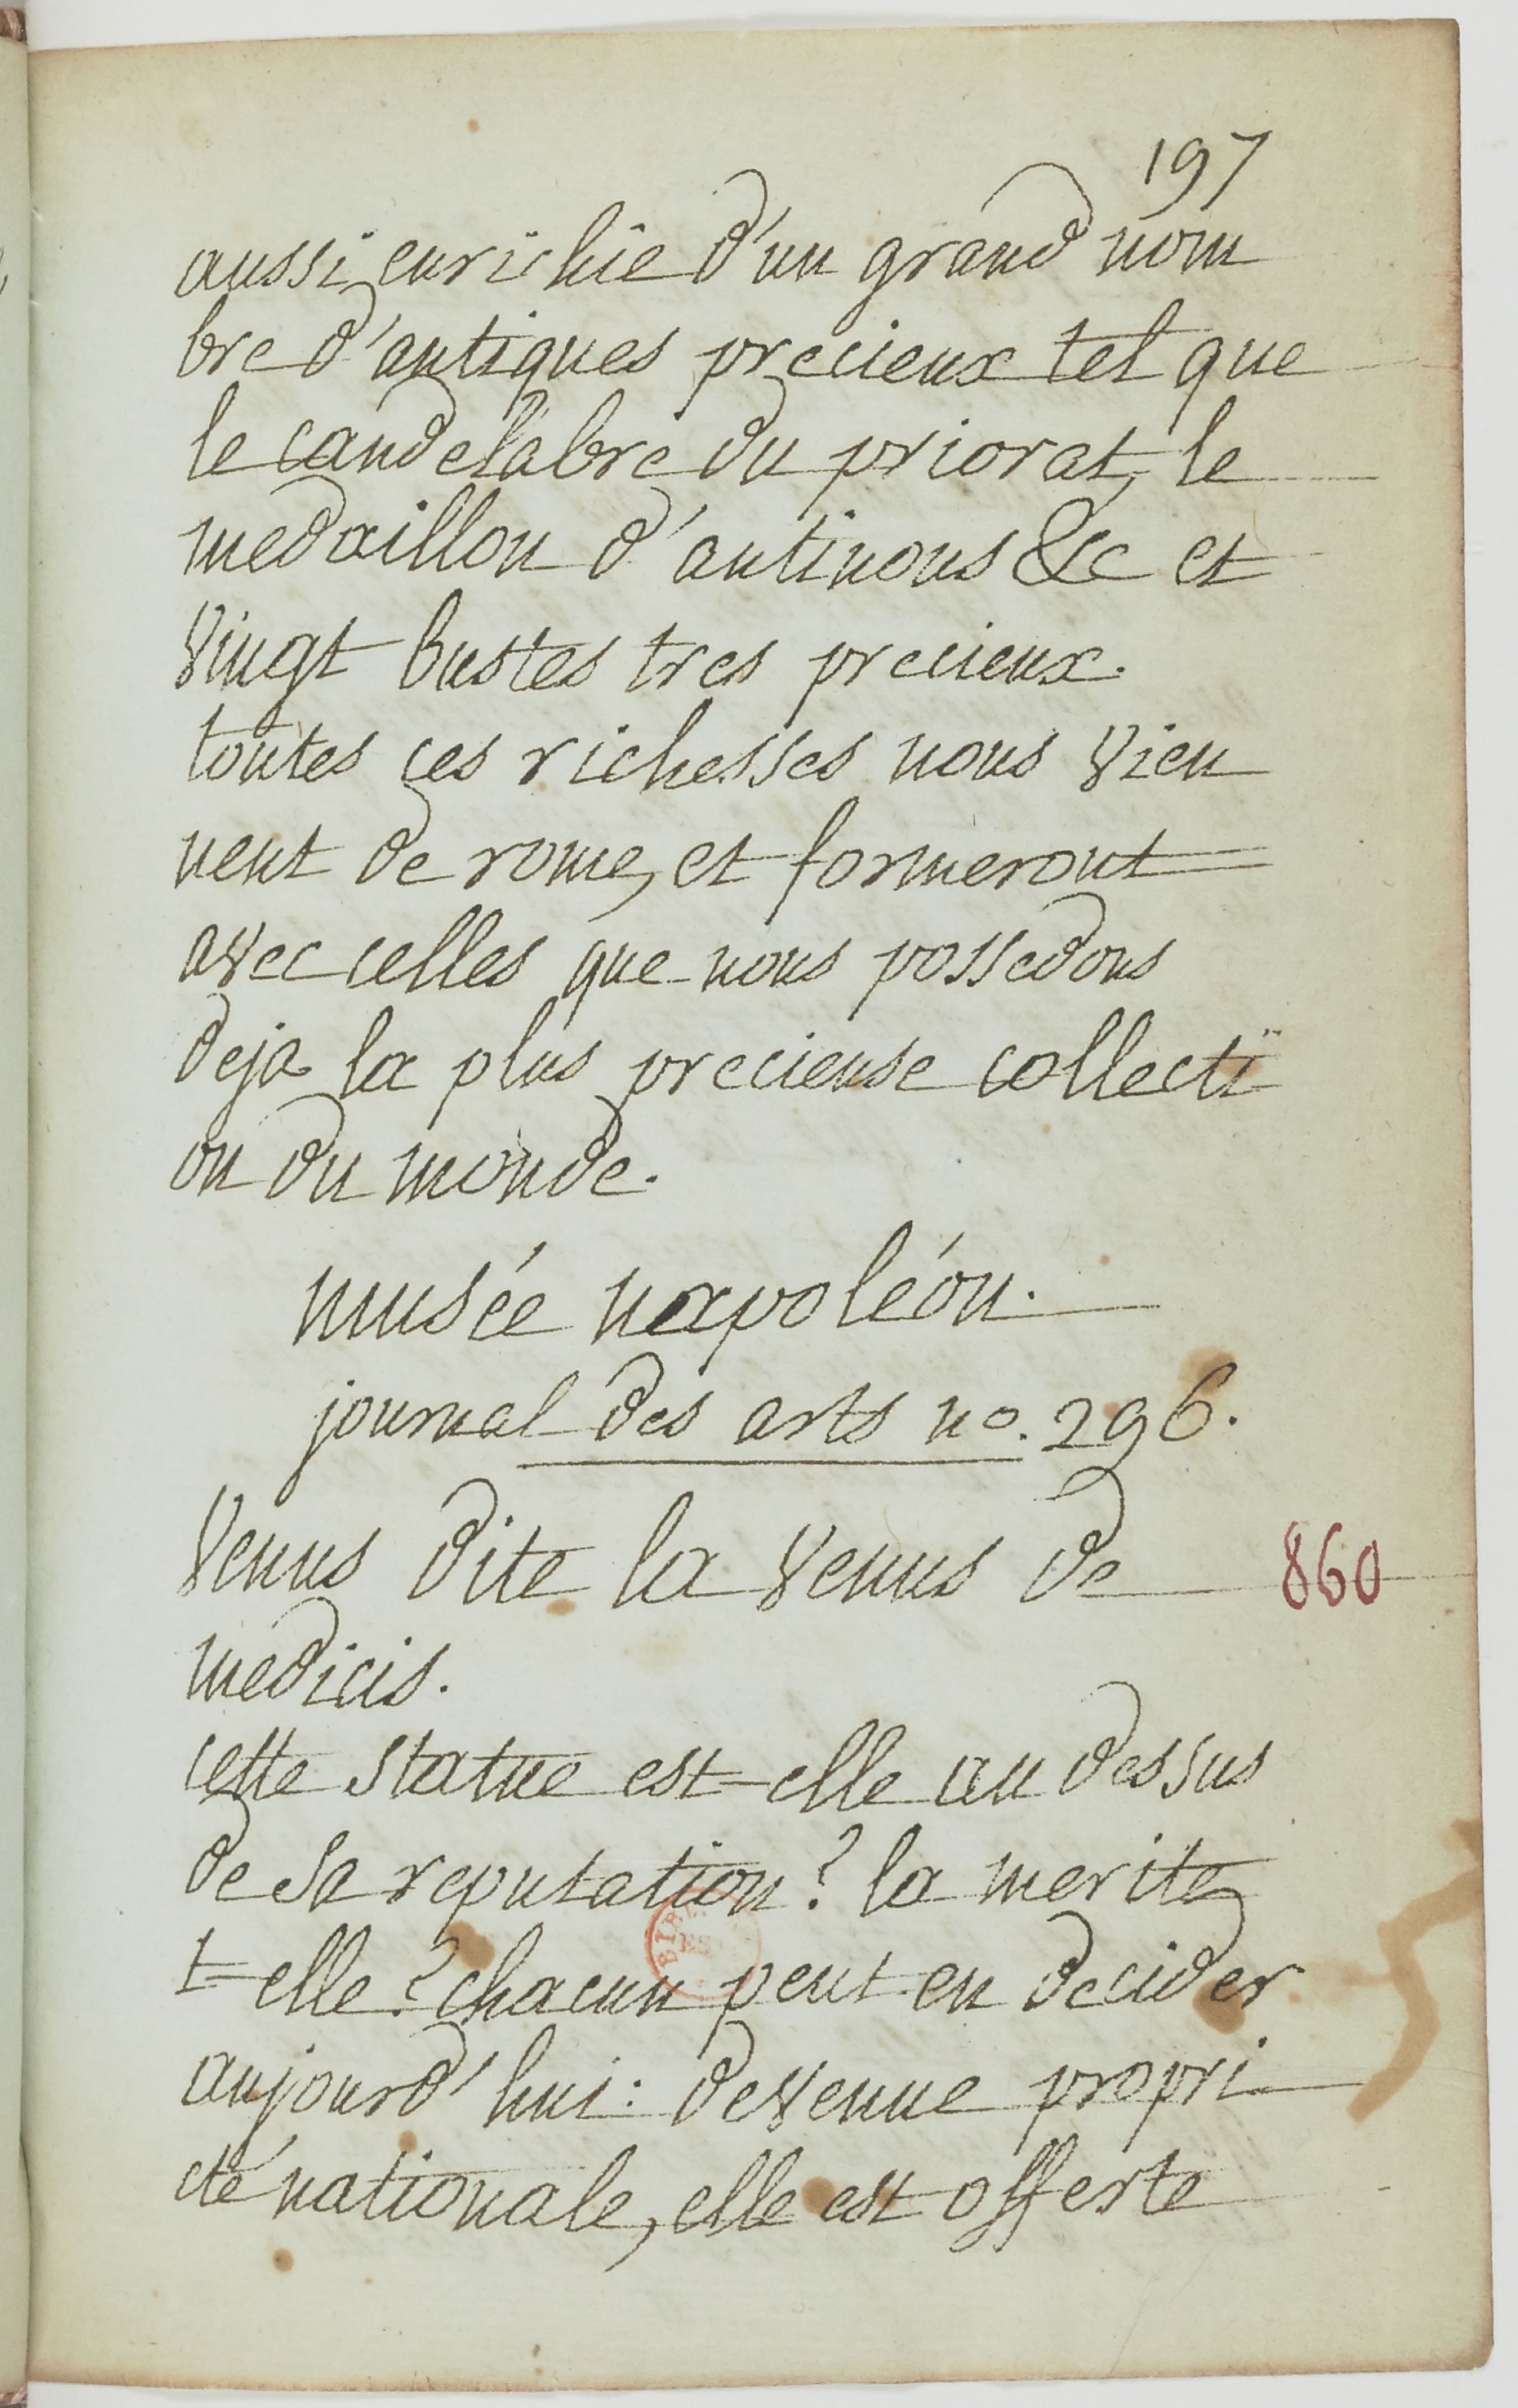 197
aussi enrichie d'un grand nom
bre d'antiques precieux tel que
le candelabre du priorat, le
medaillon d'antinous &c et
vingt bustes tres precieux.
toutes ces richesses nous vien
nent de rome, et formeront
avec celles que nous possedons
deja la plus precieuse collecti
on du monde.
musée napoléon.
journal des arts no. 296.
venus dite la venus de 860
medicis.
cette statue est-elle au dessus
de sa reputation? la merite
t-elle? chacun peut en decider
aujourd'hui: devenue propri
eté nationale, elle est offerte